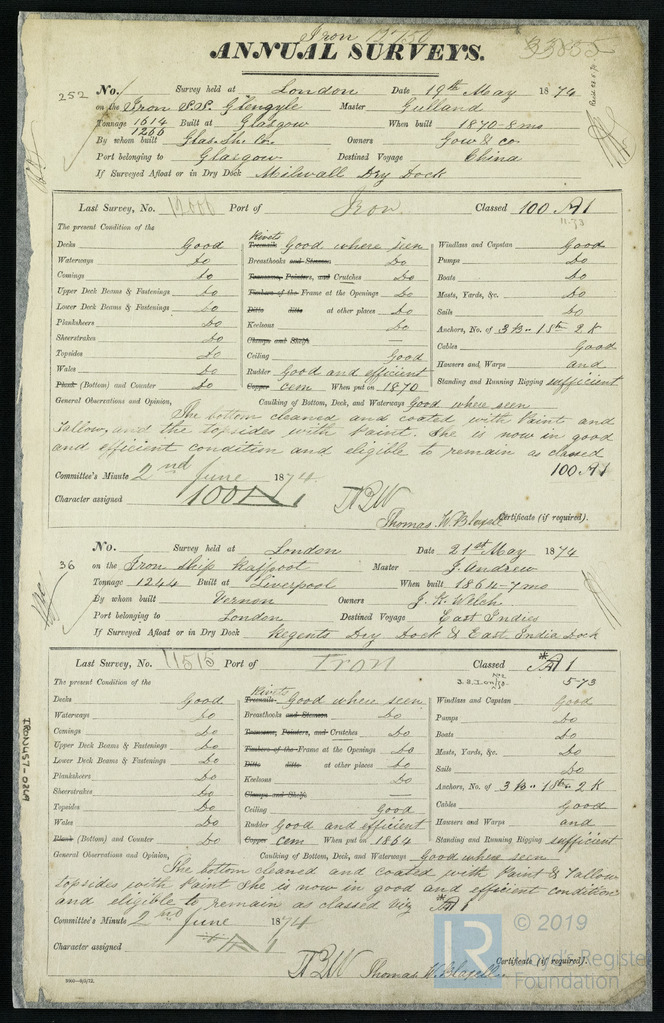 Iron
33855
ANNUAL SURVEYS.
252 No. Survey held at London Date 19th May 1874
on the Iron S.S. Glengyle Master Gulland
Tonnage 1614 Built at Glasgow When built 1870-8mo
1266
By whom built Glas. Sh. Co. Owners Gow & co.
Port belonging to Glasgow Destined Voyage China
If Surveyed Afloat or in Dry Dock Milwall Dry Dock
Last Survey, No. Port of Iron Classed 100 A1
11.73
The present Condition of the
Decks Good Rivets Treenails Good where seen Windlass and Capstan Good
Waterways Do Breasthooks and Stemson Do Pumps Do
Comings Do Transoms, Pointers, and Crutches Do Boats Do
Upper Deck Beams & Fastenings Do Timbers of the Frame at the Openings Do Masts, Yards, &c. Do
Lower Deck Beams & Fastenings Do Ditto ditto at other places Do Sails Do
Planksheers Do Keelsons Do Anchors, No. of 3 B.. 1 St.. 2 K
Sheerstrakes Do Clamps and Shelfs — Cables Good
Topsides Do Ceiling Good Hawsers and Warps and
Wales Do Rudder Good and efficient Standing and Running Rigging sufficient
Plank (Bottom) and Counter Do Copper cem When put on 1870
General Observations and Opinion, Caulking of Bottom, Deck, and Waterways Good where seen
The bottom cleaned and coated with Paint and
Tallow, and the topsides with Paint. She is now in good
and efficient condition and eligible to remain as classed
100 A1
Committee's Minute 2nd June 1874.
Character assigned 100 A1
TBW
Thomas W. Blaxell Certificate (if required).
36 No. Survey held at London Date 21st May 1874
on the Iron Ship Rajpoot Master J. Andrew
Tonnage 1244 Built at Liverpool When built 1864-7mo
By whom built Vernon Owners J. K. Welch
Port belonging to London Destined Voyage East Indies
If Surveyed Afloat or in Dry Dock Regents Dry Dock & East India Dock
Last Survey, No. 11515 Port of Iron Classed A1
5-73
The present Condition of the
Decks Good Rivets Treenails Good where seen Windlass and Capstan Good
Waterways Do Breasthooks and Stemson Do Pumps Do
Comings Do Transoms, Pointers, and Crutches Do Boats Do
Upper Deck Beams & Fastenings Do Timbers of the Frame at the Openings Do Masts, Yards, &c. Do
Lower Deck Beams & Fastenings Do Ditto ditto at other places Do Sails Do
Planksheers Do Keelsons Do Anchors, No. of 3 B.. 1 St.. 2 K
Sheerstrakes Do Clamps and Shelfs — Cables Good
Topsides Do Ceiling Good Hawsers and Warps and
Wales Do Rudder Good and efficient Standing and Running Rigging sufficient
Plank (Bottom) and Counter Do Copper cem When put on 1864
General Observations and Opinion, Caulking of Bottom, Deck, and Waterways Good where seen
The bottom cleaned and coated with Paint & Tallow
topsides with Paint She is now in good and efficient condition
and eligible to remain as classed viz A1
Committee's Minute 2nd June 1874
Character assigned A1
TBW Thomas W. Blaxell Certificate (if required).
IRON457-0269
LR © 2019
Lloyd's Register
Foundation